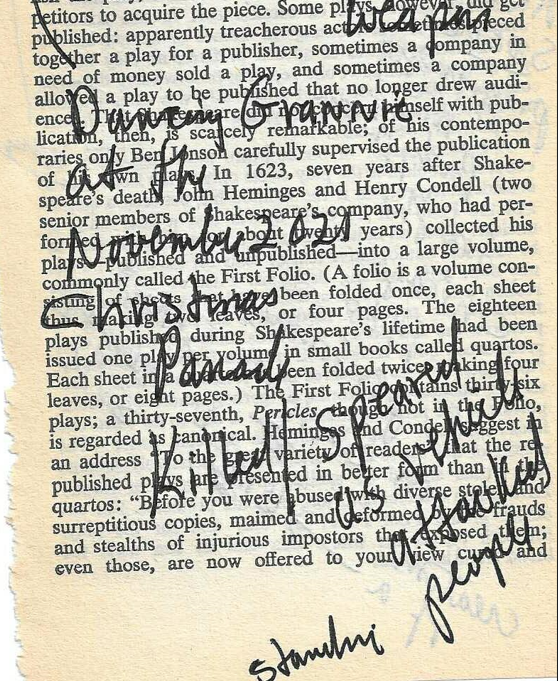 petitors to acquire the piece. Some plays, however, did get
published: apparently treacherous actors sometimes pieced
together a play for a publisher, sometimes a company in
need of money sold a play, and sometimes a company
allowed a play to be published that no longer drew audi-
ences. himself with pub-
lication, then, is scarcely remarkable; of his contempo-
raries only Ben Jonson carefully supervised the publication
of his own plays. In 1623, seven years after Shake-
speare's death, John Heminges and Henry Condell (two
senior members of Shakespeare's company, who had per-
formed about twenty years) collected his
plays—published and unpublished—into a large volume,
commonly called the First Folio. (A folio is a volume con-
sisting of sheets that have been folded once, each sheet
thus making two leaves, or four pages. The eighteen
plays published during Shakespeare's lifetime had been
issued one play per volume in small books called quartos.
Each sheet in been folded twice, making four
leaves, or eight pages.) The First Folio contains thirty-six
plays; a thirty-seventh, Pericles, though not in the Folio,
is regarded as canonical. Heminges and Condell suggest in
an address "To the great variety of readers" that the re-
published plays are presented in better form than in the
quartos: "Before you were abused with diverse stolen and
surreptitious copies, maimed and deformed by the frauds
and stealths of injurious impostors that exposed them;
even those, are now offered to your view cured and
weapon
Dancing Grannie
at the
November 2021
Christmas
Parade
Killed Speared
as vehicle
attacked
people